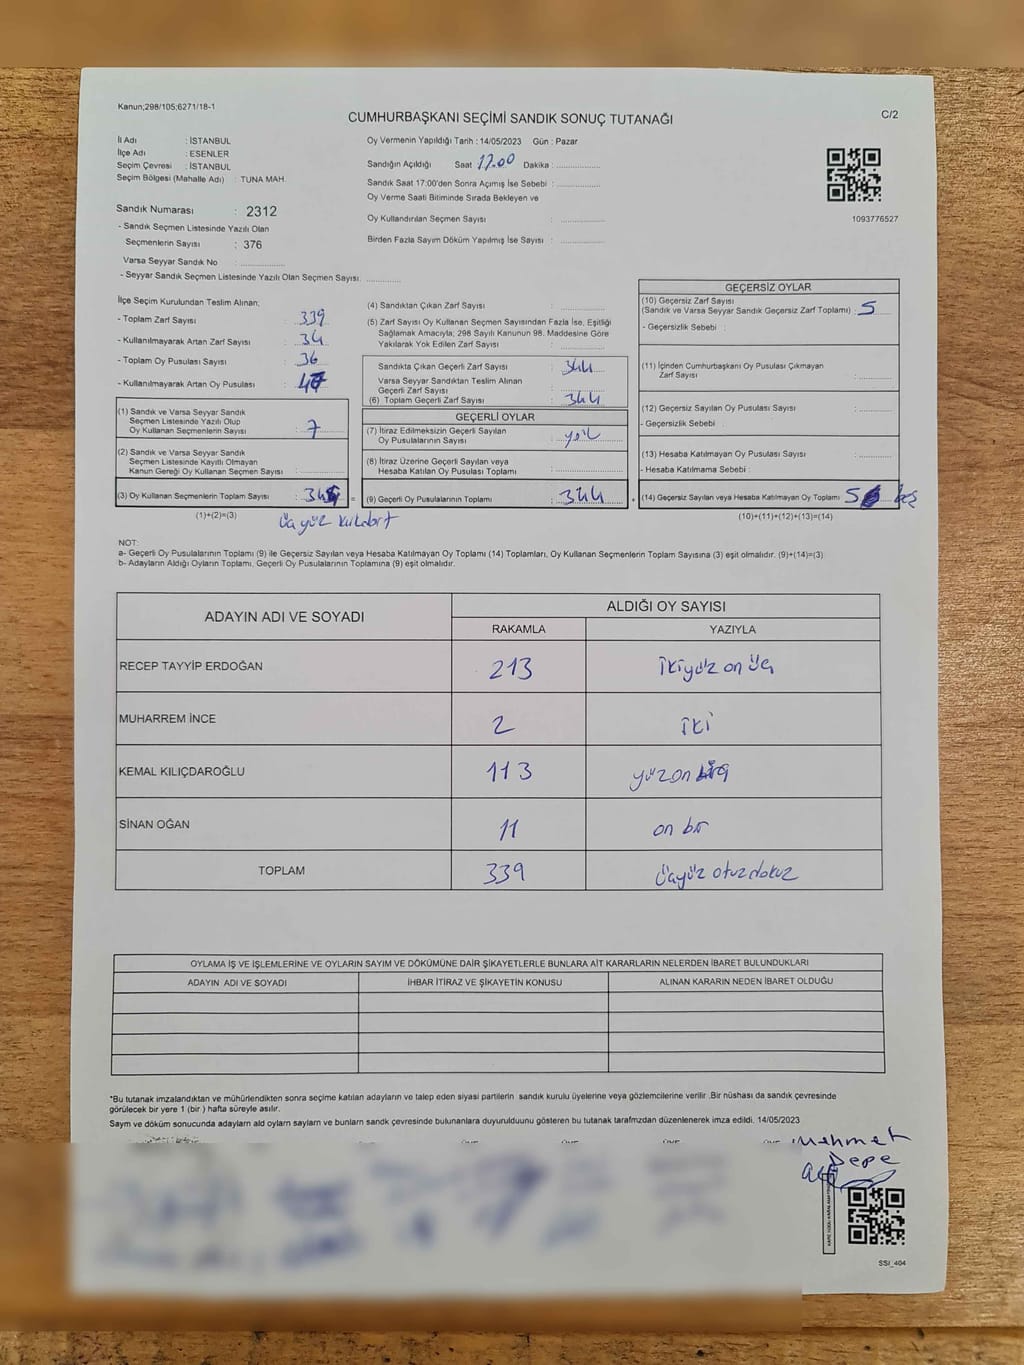 Kanun;298/105;6271/18-1
CUMHURBAŞKANI SEÇİMİ SANDIK SONUÇ TUTANAĞI
C/2
İl Adı : İSTANBUL
İlçe Adı : ESENLER
Seçim Çevresi : İSTANBUL
Seçim Bölgesi (Mahalle Adı) : TUNA MAH.
Sandık Numarası : 2312
- Sandık Seçmen Listesinde Yazılı Olan
Seçmenlerin Sayısı : 376
Varsa Seyyar Sandık No :
- Seyyar Sandık Seçmen Listesinde Yazılı Olan Seçmen Sayısı:
Oy Vermenin Yapıldığı Tarih : 14/05/2023 Gün : Pazar
Sandığın Açıldığı Saat 17.00 Dakika :
Sandık Saat 17:00'den Sonra Açımış İse Sebebi :
Oy Verme Saati Bitiminde Sırada Bekleyen ve
Oy Kullandırılan Seçmen Sayısı :
Birden Fazla Sayım Döküm Yapılmış İse Sayısı :
1093776527
İlçe Seçim Kurulundan Teslim Alınan;
- Toplam Zarf Sayısı : 339
- Kullanılmayarak Artan Zarf Sayısı : 34
- Toplam Oy Pusulası Sayısı : 36
- Kullanılmayarak Artan Oy Pusulası :
(1) Sandık ve Varsa Seyyar Sandık
Seçmen Listesinde Yazılı Olup
Oy Kullanan Seçmenlerin Sayısı : 7
(2) Sandık ve Varsa Seyyar Sandık
Seçmen Listesinde Kayıtlı Olmayan
Kanun Gereği Oy Kullanan Seçmen Sayısı :
(3) Oy Kullanan Seçmenlerin Toplam Sayısı :
(1)+(2)=(3)
(4) Sandıktan Çıkan Zarf Sayısı :
(5) Zarf Sayısı Oy Kullanan Seçmen Sayısından Fazla İse, Eşitliği
Sağlamak Amacıyla; 298 Sayılı Kanunun 98. Maddesine Göre
Yakılarak Yok Edilen Zarf Sayısı :
Sandıkta Çıkan Geçerli Zarf Sayısı : 344
Varsa Seyyar Sandıktan Teslim Alınan
Geçerli Zarf Sayısı :
(6) Toplam Geçerli Zarf Sayısı : 344
GEÇERLİ OYLAR
(7) İtiraz Edilmeksizin Geçerli Sayılan
Oy Pusulalarının Sayısı :
(8) İtiraz Üzerine Geçerli Sayılan veya
Hesaba Katılan Oy Pusulası Toplamı :
= (9) Geçerli Oy Pusulalarının Toplamı : 344
GEÇERSİZ OYLAR
(10) Geçersiz Zarf Sayısı
(Sandık ve Varsa Seyyar Sandık Geçersiz Zarf Toplamı) : 5
- Geçersizlik Sebebi :
(11) İçinden Cumhurbaşkanı Oy Pusulası Çıkmayan
Zarf Sayısı :
(12) Geçersiz Sayılan Oy Pusulası Sayısı :
- Geçersizlik Sebebi :
(13) Hesaba Katılmayan Oy Pusulası Sayısı :
- Hesaba Katılmama Sebebi :
+ (14) Geçersiz Sayılan veya Hesaba Katılmayan Oy Toplamı 5 beş
(10)+(11)+(12)+(13)=(14)
NOT:
a- Geçerli Oy Pusulalarının Toplamı (9) ile Geçersiz Sayılan veya Hesaba Katılmayan Oy Toplamı (14) Toplamları, Oy Kullanan Seçmenlerin Toplam Sayısına (3) eşit olmalıdır. (9)+(14)=(3)
b- Adayların Aldığı Oyların Toplamı, Geçerli Oy Pusulalarının Toplamına (9) eşit olmalıdır.
ADAYIN ADI VE SOYADI
ALDIĞI OY SAYISI
RAKAMLA YAZIYLA
RECEP TAYYİP ERDOĞAN 213 ikiyüz on üç
MUHARREM İNCE 2 iki
KEMAL KILIÇDAROĞLU 113 yüzon
SİNAN OĞAN 11 on bir
TOPLAM 339 üçyüz otuz dokuz
OYLAMA İŞ VE İŞLEMLERİNE VE OYLARIN SAYIM VE DÖKÜMÜNE DAİR ŞİKAYETLERLE BUNLARA AİT KARARLARIN NELERDEN İBARET BULUNDUKLARI
ADAYIN ADI VE SOYADI İHBAR İTİRAZ VE ŞİKAYETİN KONUSU ALINAN KARARIN NEDEN İBARET OLDUĞU
*Bu tutanak imzalandıktan ve mühürlendikten sonra seçime katılan adayların ve talep eden siyasi partilerin sandık kurulu üyelerine veya gözlemcilerine verilir .Bir nüshası da sandık çevresinde
görülecek bir yere 1 (bir ) hafta süreyle asılır.
Sayım ve döküm sonucunda adayların ald oyların sayların ve bunların sandk çevresinde bulunanlara duyurulduunu gösteren bu tutanak tarafmzdan düzenlenerek imza edildi. 14/05/2023
Mehmet
SSI_404